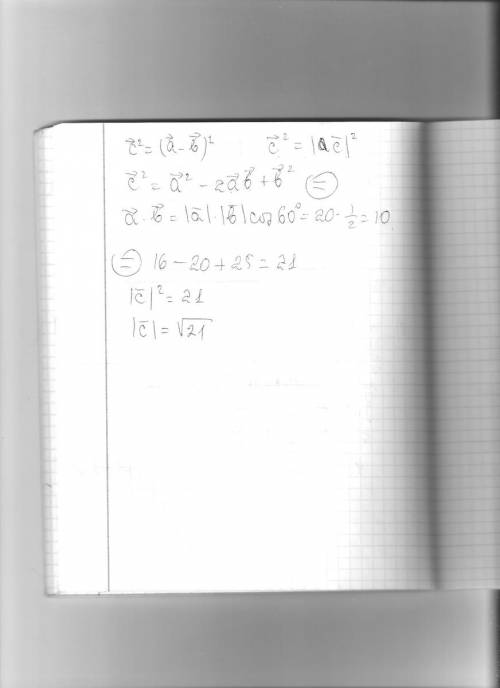 c⃗² = (a⃗ - b⃗)² c⃗² = |c̄|²
c⃗² = a⃗² - 2a⃗b⃗ + b⃗² ⊜
a⃗ · b⃗ = |ā| · |b̄| cos 60° = 20 · 1/2 = 10
⊜ 16 - 20 + 25 = 21
|c̄|² = 21
|c̄| = √21